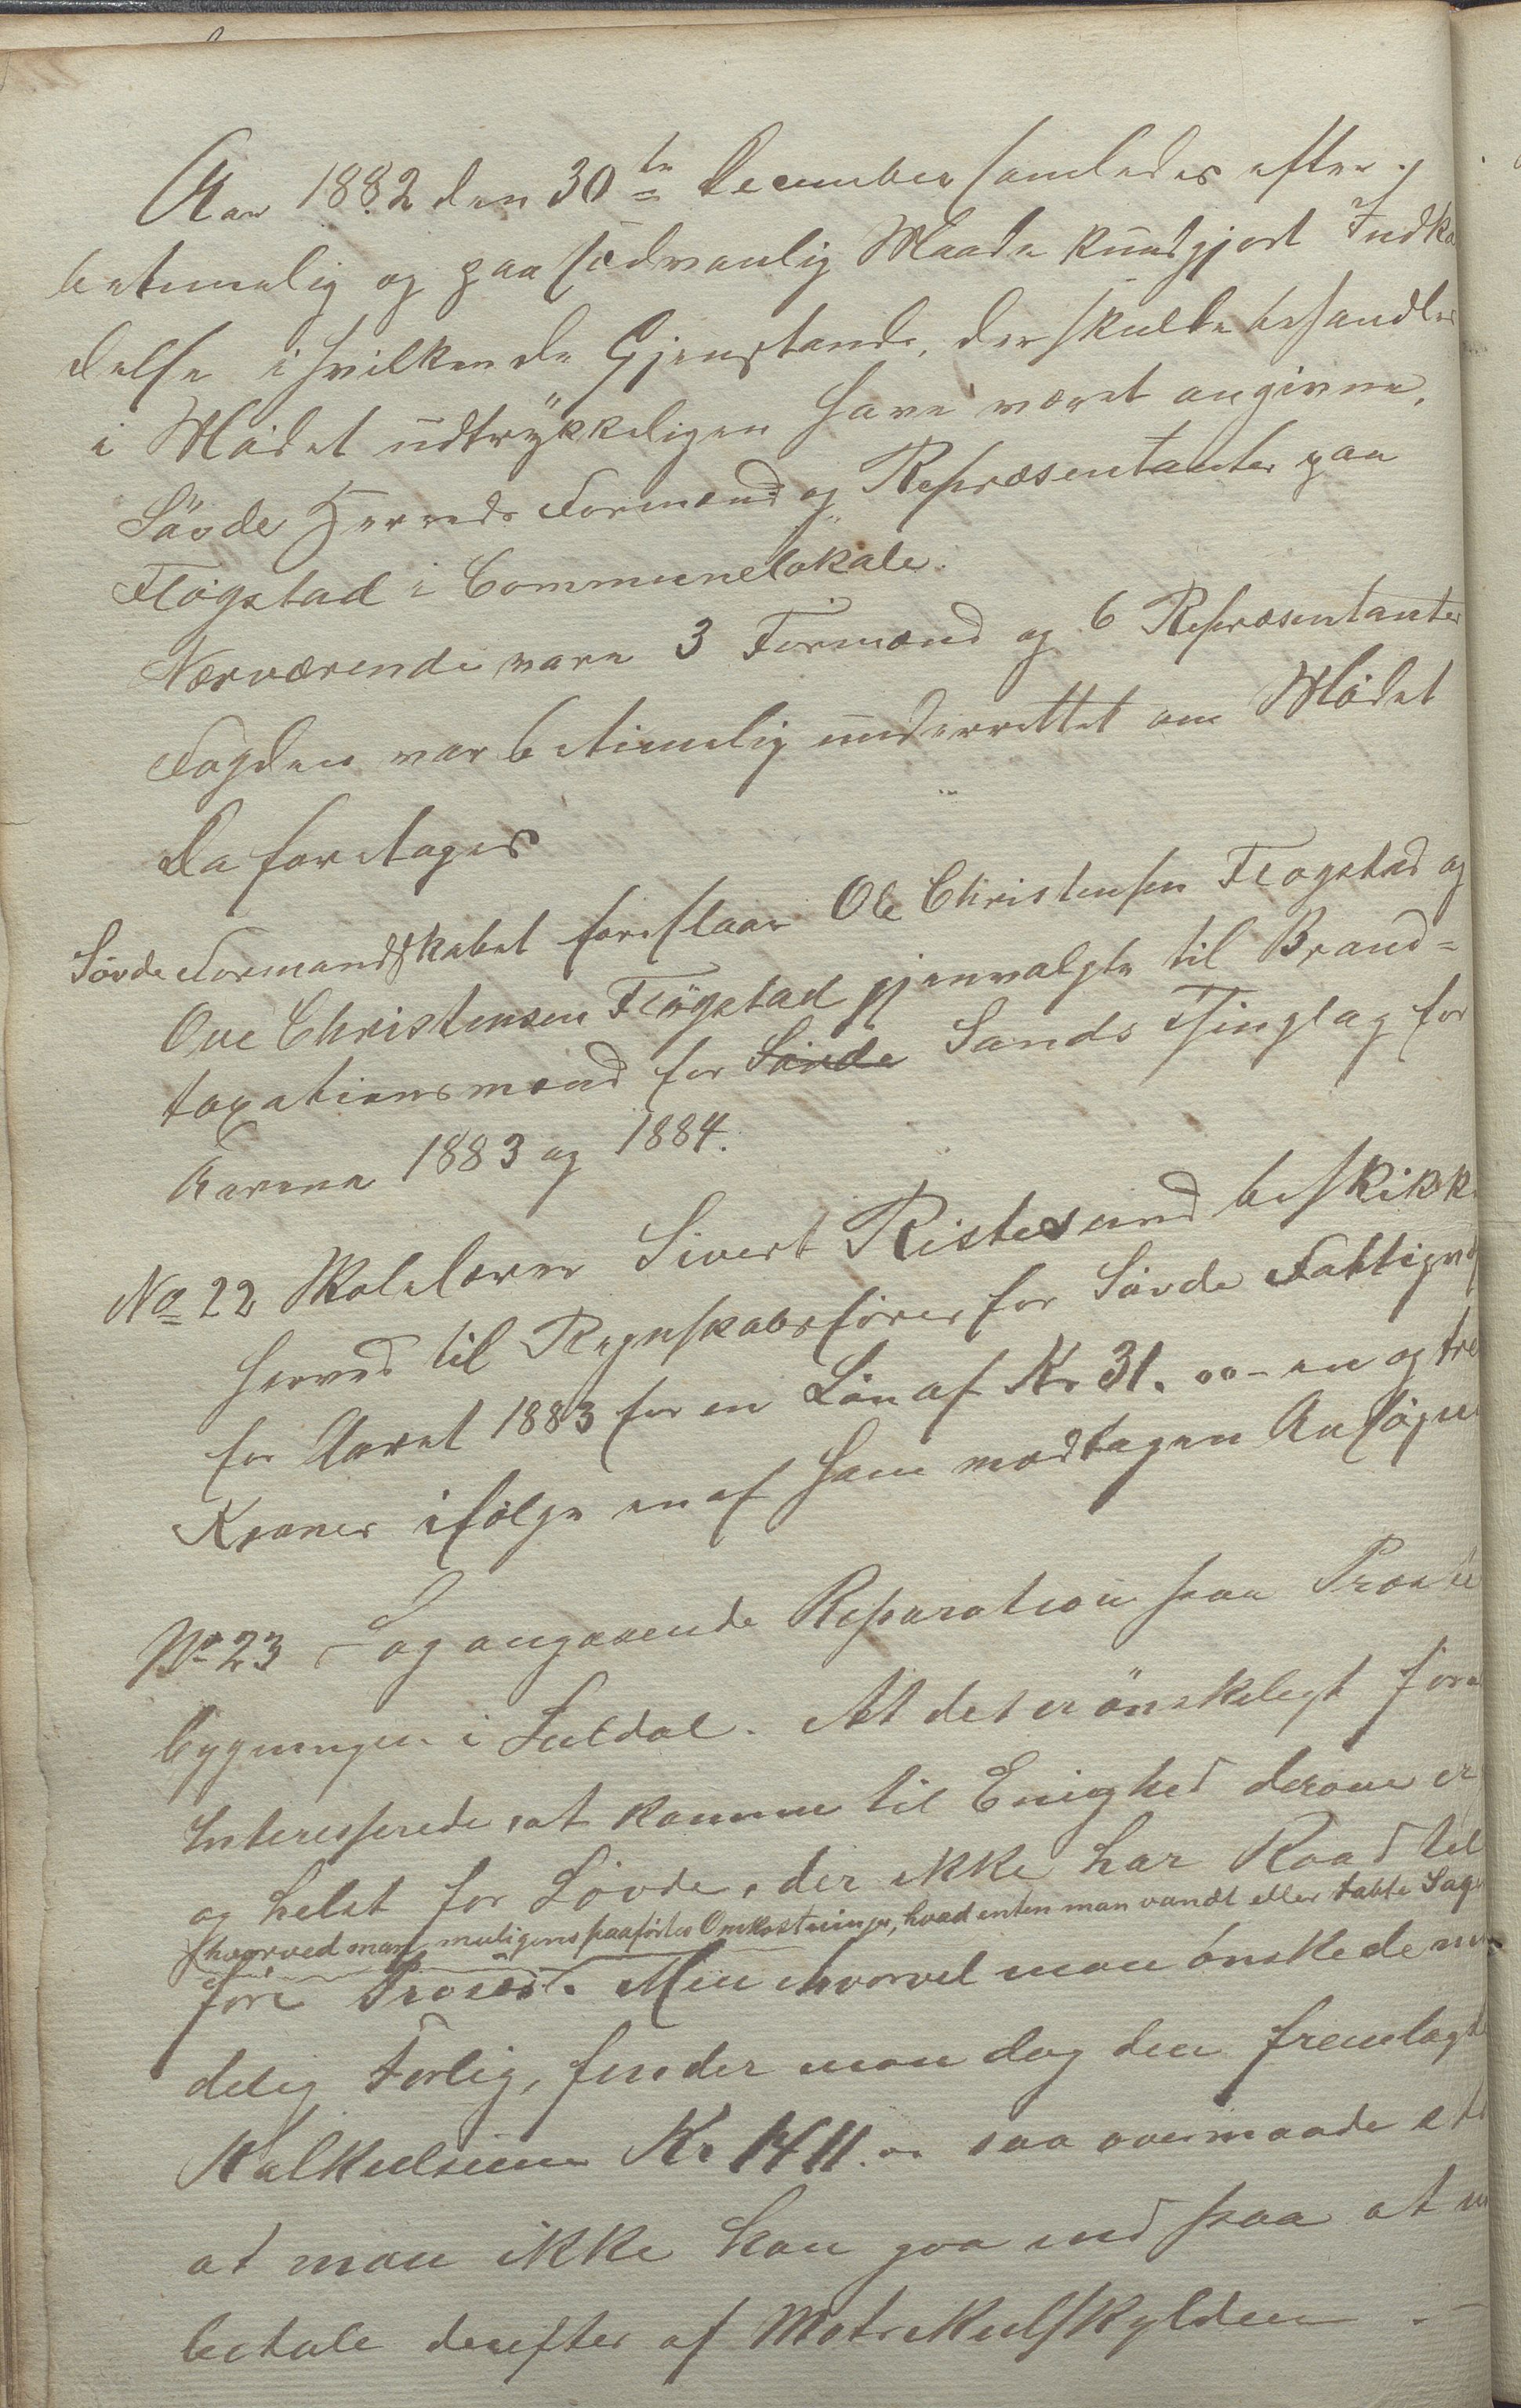 Aar 1882 den 30te December samledes efter
betimelig og paa sædvanlig Maade kundgjort Indkal
delse i hvilken de Gjenstande, der skulde behandles
i Mødet udtrykkeligen have været angivne,
Søvde Herreds Formænd og Repræsentanter paa
Fløgstad i Communelokale.
Nærværende vare 3 Formænd og 6 Repræsentanter
Fogden var betimelig underrettet om Mødet
Da foretoges
Søvde Formandskabet foreslaar Ole Christensen Fløgstad og
Ove Christensen Fløgstad gjenvalgte til Brand-
taxationsmænd for Søvde Sands Thinglag for
Aarene 1883 og 1884.
No 22 Skolelærer Sivert Ristesund beskikke
herved til Regnskabsfører for Søvde Fattigv
for Aaret 1883 for en Løn af Kr 31.00 - en og tre
Kroner ifølge en af ham modtagen Ansøgn
No 23 Sag angaaende Reparation paa Præste
bygningen i Suldal. At det er ønskeligt for
Interesserede, at komme til Enighed derom er
og helst for Søvde, der ikke har Raad til
hvorved man muligens paaførtes Omkostninger, hvad enten man vandt eller tabte Sag
føre Proces. Men hvorvel man ønskede
delig Forlig, finder man dog den fremlagte
Kalkulsum Kr 1411.00 saa overmaade
at man ikke kan gaa ind paa at
betale derefter af Matrikulskylden. -